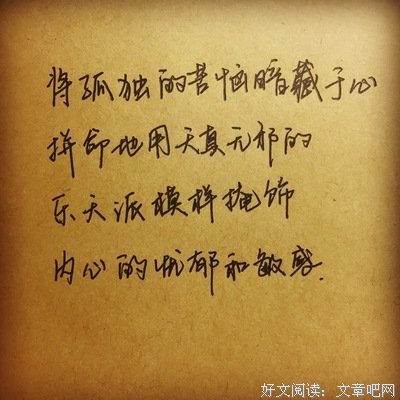 将孤独的苦恼暗藏于心
拼命地用天真无邪的
乐天派模样掩饰
内心的忧郁和敏感.
好文阅读：文章吧网